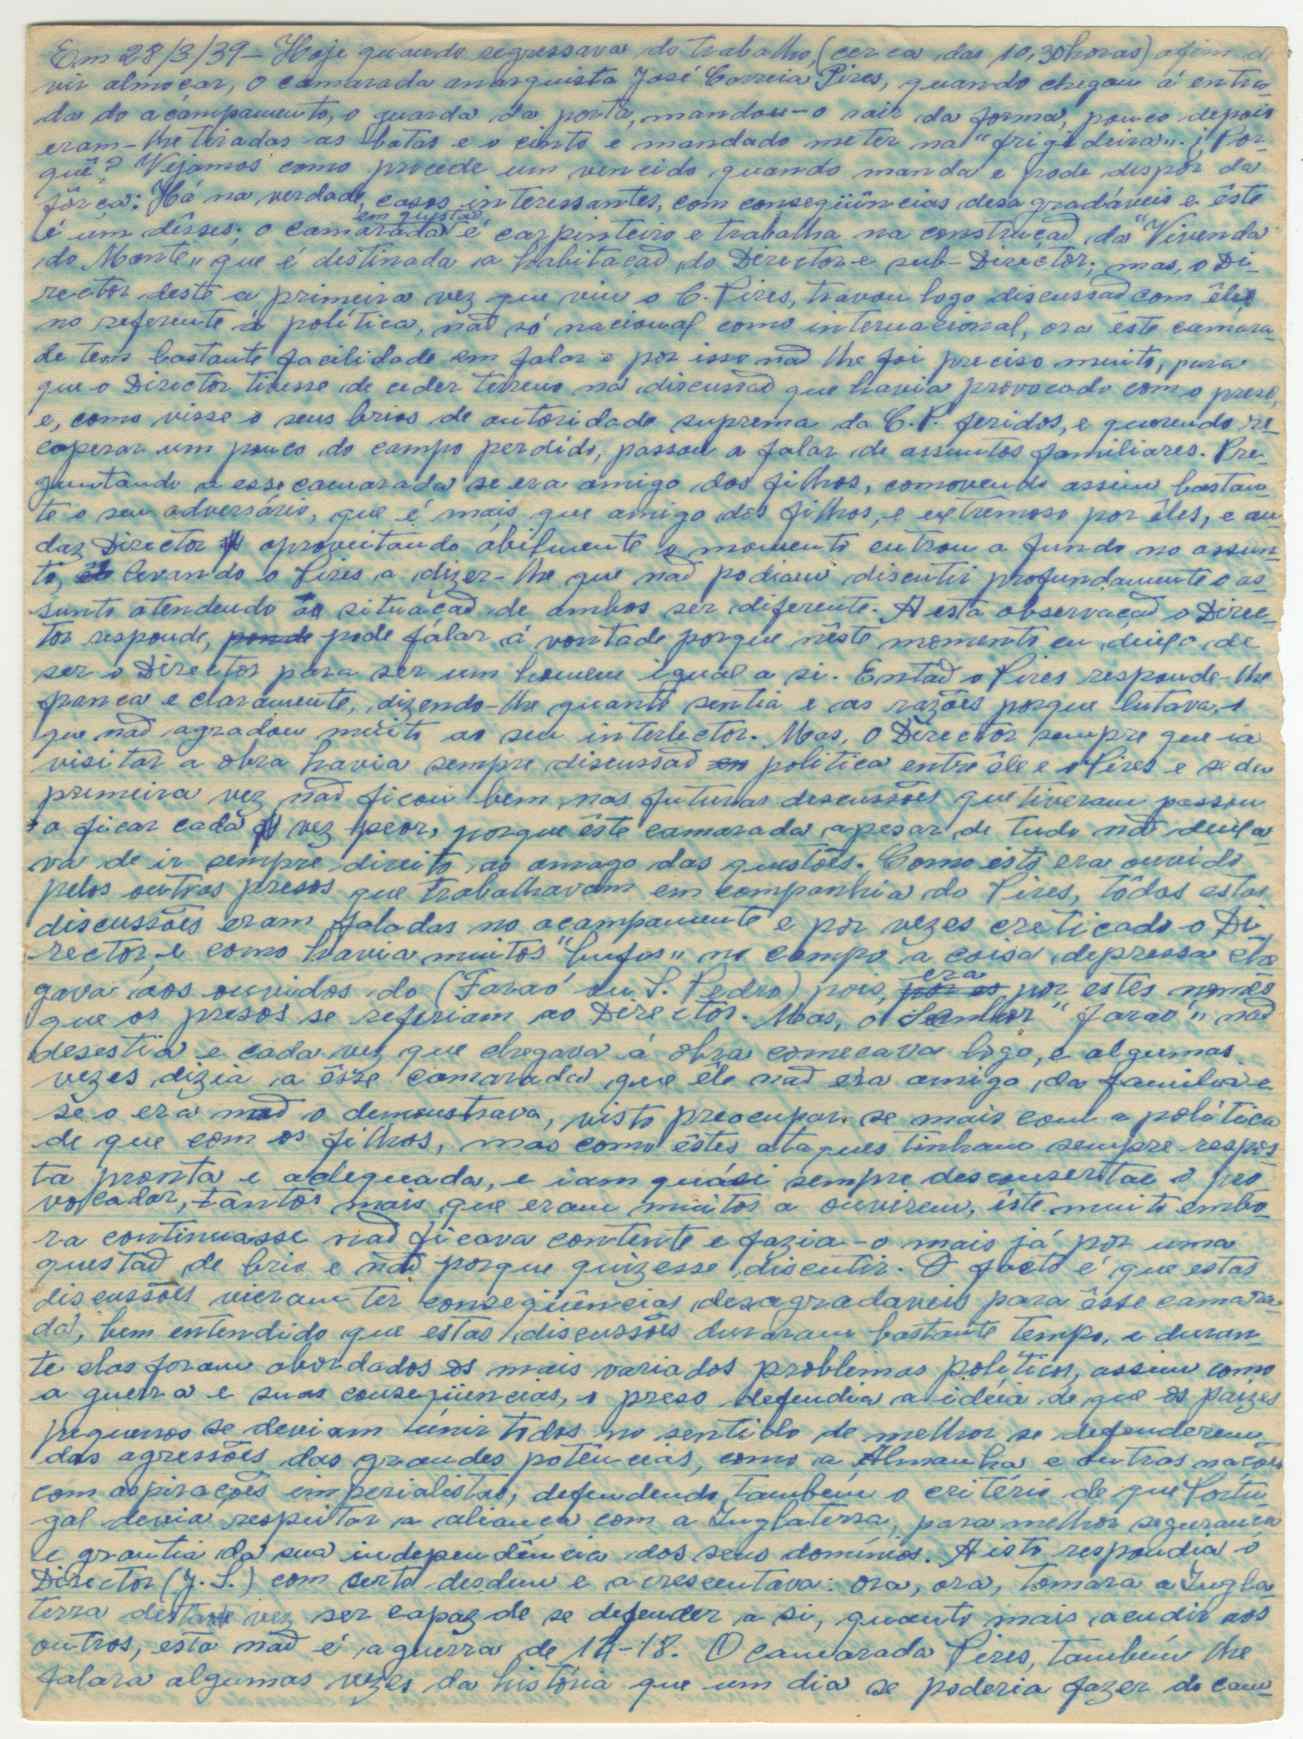 Em 28/3/39 - Hoje quando regressava do trabalho, (cerca das 10,30 horas) afim de
vir almoçar, o camarada anarquista José Correia Pires, quando chegou á entra-
da do acampamento, o guarda da porta, mandou-o sair da forma, pouco depois
eram-lhe tiradas as botas e o cinto e mandado meter na "frigideira". ¿Por-
quê? Vejamos como procede um vencido quando manda e pode dispôr da
fôrça: Há na verdade, casos interessantes, com conseqüências desagradáveis e êste
é um dêsses; o camarada em questão é carpinteiro e trabalha na construcaõ da "Vivenda
do Monte" que é distinada a habitacaõ do Director e sub-Director; mas, o Di-
rector deste a primeira vez que viu o C. Pires, travou logo discussaõ com êle
no referente á política, naõ só nacional como internacional, ora êste camara-
da tem bastante facilidade em falar e por isso naõ lhe foi preciso muito, para
que o Director tivesse de ceder terreno na discussaõ que havia provocado com o preso,
e, como visse o seus brios de autoridade suprema da C.P. feridos, e querendo re-
coperar um pouco do campo perdido, passou a falar de assuntos familiares. Pre-
guntando a esse camarada se era amigo dos filhos, comovendo assim bastan-
te o seu adversário, que é mais que amigo dos filhos, é extremoso por êles, e au-
daz Director aproveitando ábilmente o momento entrou a fundo no assun-
to, levando o Pires a dizer-lhe que naõ podiam discutir profundamente o as-
sunto atendendo ao situaçaõ de ambos ser diferente. A esta observacaõ o Direc-
tor responde, pode falar á vontade porque nêste momento eu deixo de
ser o Director para ser um homem igual a si. Entaõ o Pires responde-lhe
franca e claramente, dizendo-lhe quanto sentia e as razões porque lutava, o
que naõ agradou muito ao seu interlector. Mas, o Director sempre que ia
visitar a obra havia sempre discussaõ politica entre êle e o Pires e se da
primeira vez naõ ficou bem, nas futuras descussões que tiveram passou
a ficar cada vez peor, porque êste camarada apesar de tudo naõ deixa-
va de ir sempre direito ao amago das questões. Como isto era ouvido
pelos outros presos que trabalhavam em companhia do Pires, tôdas estas
discussões eram faladas no acampamento e por vezes creticado o Di-
rector, e como havia muitos "bufos" no campo a coisa depressa che-
gava aos ouvidos do (Faraó ou S. Pedro) pois, era por estes nomes
que os presos se referiam ao Director. Mas, o Senhor "Faraó" naõ
desestia e cada vez que chegava á obra comecava logo, e algumas
vezes dizia a êsse camarada que êle naõ era amigo da familia e
se o era naõ o demonstrava, visto preocupar-se mais com a política
de que com os filhos, mas como êstes ataques tinham sempre respos-
ta pronta e adequada, e iam quási sempre desconsertar o pro-
vocador, tantos mais que eram muitos a ouvirem, êste muito embo-
ra continuasse naõ ficava contente e fazia-o mais já por uma
questaõ de brio e naõ porque quizesse discutir. O facto é que estas
discussões vieram ter conseqüências desagradaveis para êsse camara-
da, bem entendido que estas discussões duraram bastante tempo, e duran-
te elas foram abordados os mais variados problemas políticos, assim como
a guerra e suas conseqüencias, o preso defendia a idéia de que os paizes
pequenos se deviam únir todos no sentido de melhor se defenderem
das agressões das grandes potências, como a Almanha e outras nacões
com aspirações imperialistas, defendendo também o critério de que Portu-
gal devia respeitar a alianca com a Inglaterra, para melhor seguranca
e grantia da sua independência dos seus domínios. A isto respondia o
Director (J.S.) com certo desdem e acrescentava: ora, ora, tomara a Ingla-
terra desta vez ser capaz de se defender a si, quanto mais acudir aos
outros, esta naõ é a guerra de 14-18. O camarada Pires, também lhe
falara algumas vezes da história que um dia se poderia fazer do cam-